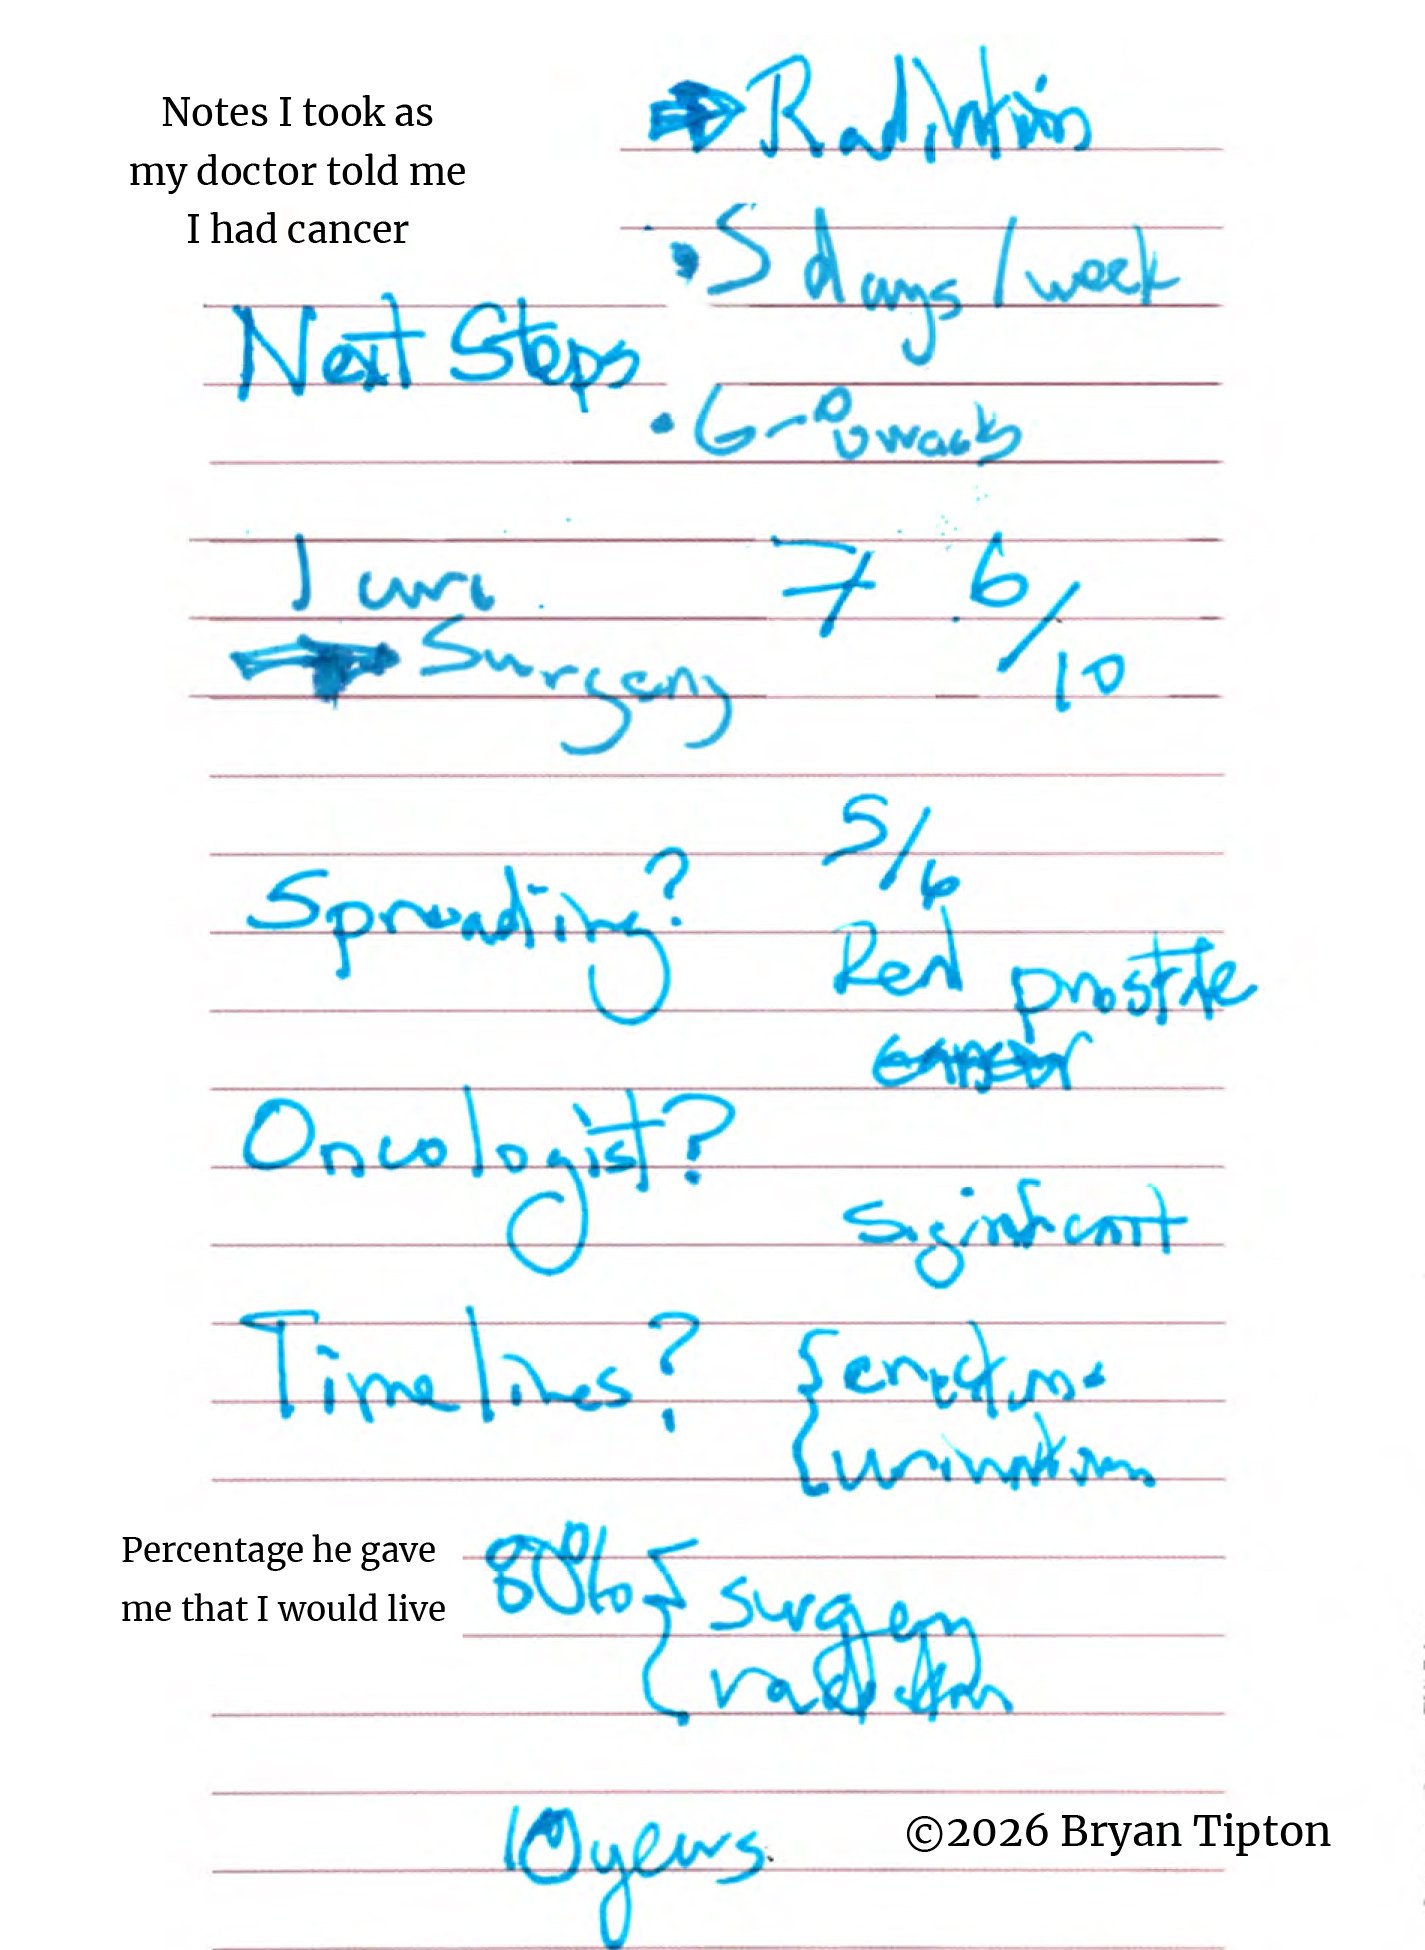 Notes I took as
my doctor told me
I had cancer
Radiation
5 days / week
Next Steps
6-8 weeks
I
7 6/10
Surgery
5/6
Spreading?
Real prostate
cancer
Oncologist?
Significant
Timelines?
erections
urination
Percentage he gave
me that I would live
80%
surgery
radiation
10 years
©2026 Bryan Tipton